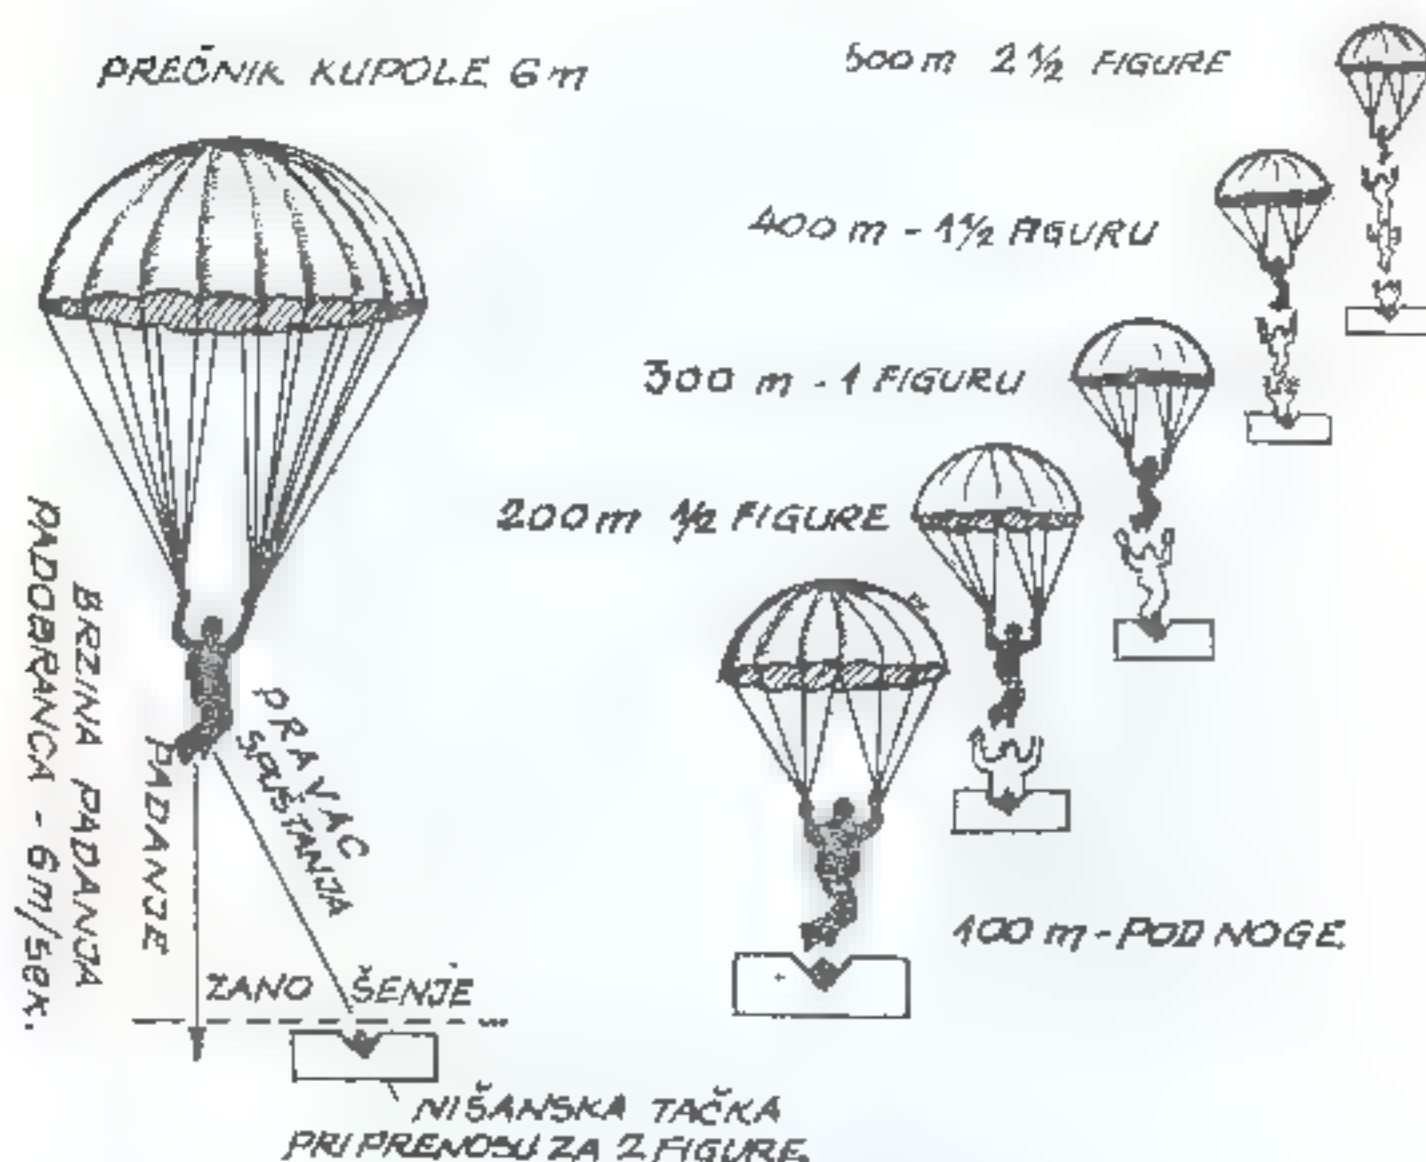 PREČNIK KUPOLE 6m
500m 2 1/2 FIGURE
400m - 1 1/2 FIGURU
300 m - 1 FIGURU
200m 1/2 FIGURE
100 m - POD NOGE
BRZINA PADANJA
PADOBRANCA - 6m/sek.
PADANJE
PRAVAC
SPUŠTANJA
ZANOŠENJE
NIŠANSKA TAČKA
PRI PRENOSU ZA 2 FIGURE.